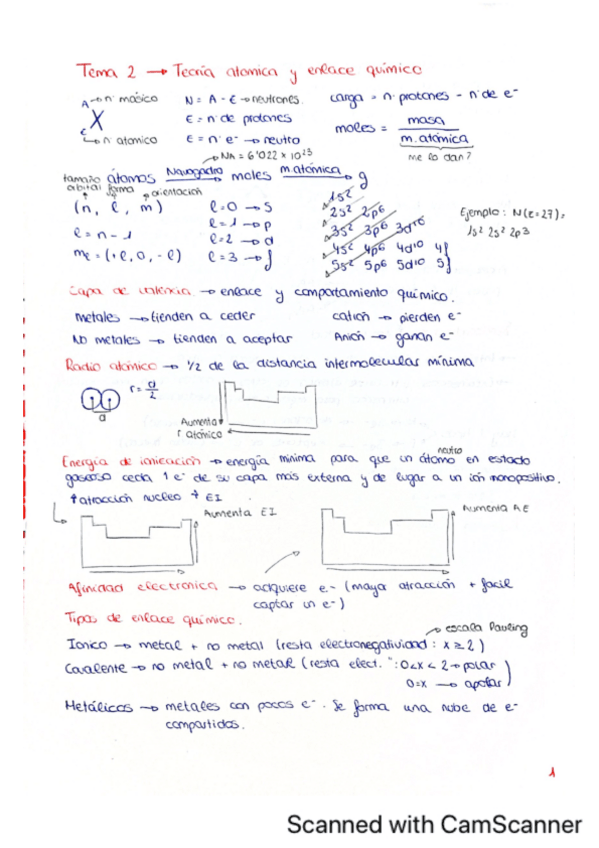 Tema 2 → Teoría atomica y enlace químico
A → nº másico
X
Z → nº atomico
N = A - Z → neutrones.
Z = nº de protones
Z = nº e- → neutro
carga = nº protones - nº de e-
moles = masa / m. atómica
me lo dan?
NA = 6'022 x 10^23
átomos Navogadro → moles m.atómica → g
tamaño orbital forma orientación
(n, l, m)
l = n - 1
ml = (+l, 0, -l)
l=0 → s
l=1 → p
l=2 → d
l=3 → f
1s2
2s2 2p6
3s2 3p6 3d10
4s2 4p6 4d10 4f
5s2 5p6 5d10 5f
Ejemplo: N(z=27):
1s2 2s2 2p3
Capa de valencia. → enlace y comportamiento químico.
metales → tienden a ceder
cation → pierden e-
No metales → tienden a aceptar
Anión → ganan e-
Radio atómico → 1/2 de la distancia intermolecular mínima
r = d/2
d
Aumenta
r atómico
Energía de ionicación → energía mínima para que un átomo neutro en estado
gaseoso ceda 1 e- de su capa más externa y de lugar a un ión monopositivo.
↑ atracción nucleo ↑ EI
Aumenta EI
Aumenta AE
Afinidad electronica → adquiere e- (mayor atracción + facil
captar un e-)
Tipos de enlace químico.
→ escala Pauling
Ionico → metal + no metal (resta electronegatividad: x ≥ 2)
Covalente → no metal + no metal (resta elect. ": 0<x<2 → polar
0=x → apolar)
Metálicos → metales con pocos e-. Se forma una nube de e-
compartidos.
1
Scanned with CamScanner